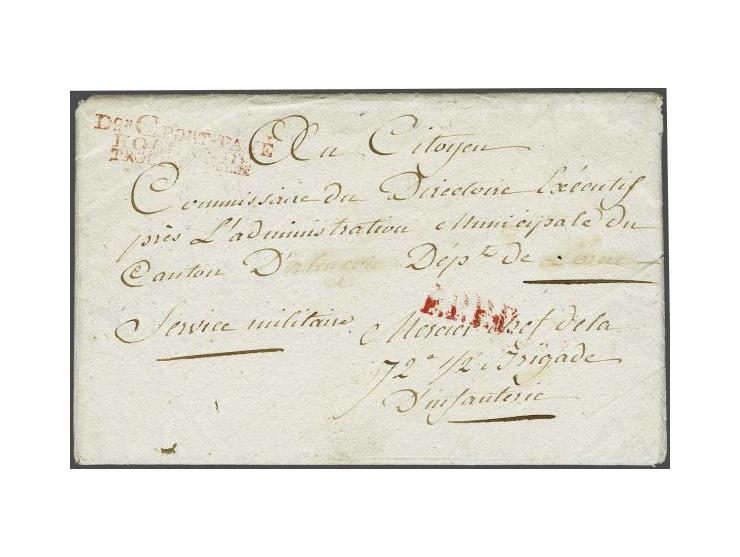 Don C. PORT-PAYÉ
Au Citoyen
Commissaire du Directoire Exécutif
près L'administration Municipale du
Canton D'alençon Dépt. de
Service militaire
P.P.P.P.
Mercier chef de la
72e 1/2 Brigade
D'infanterie